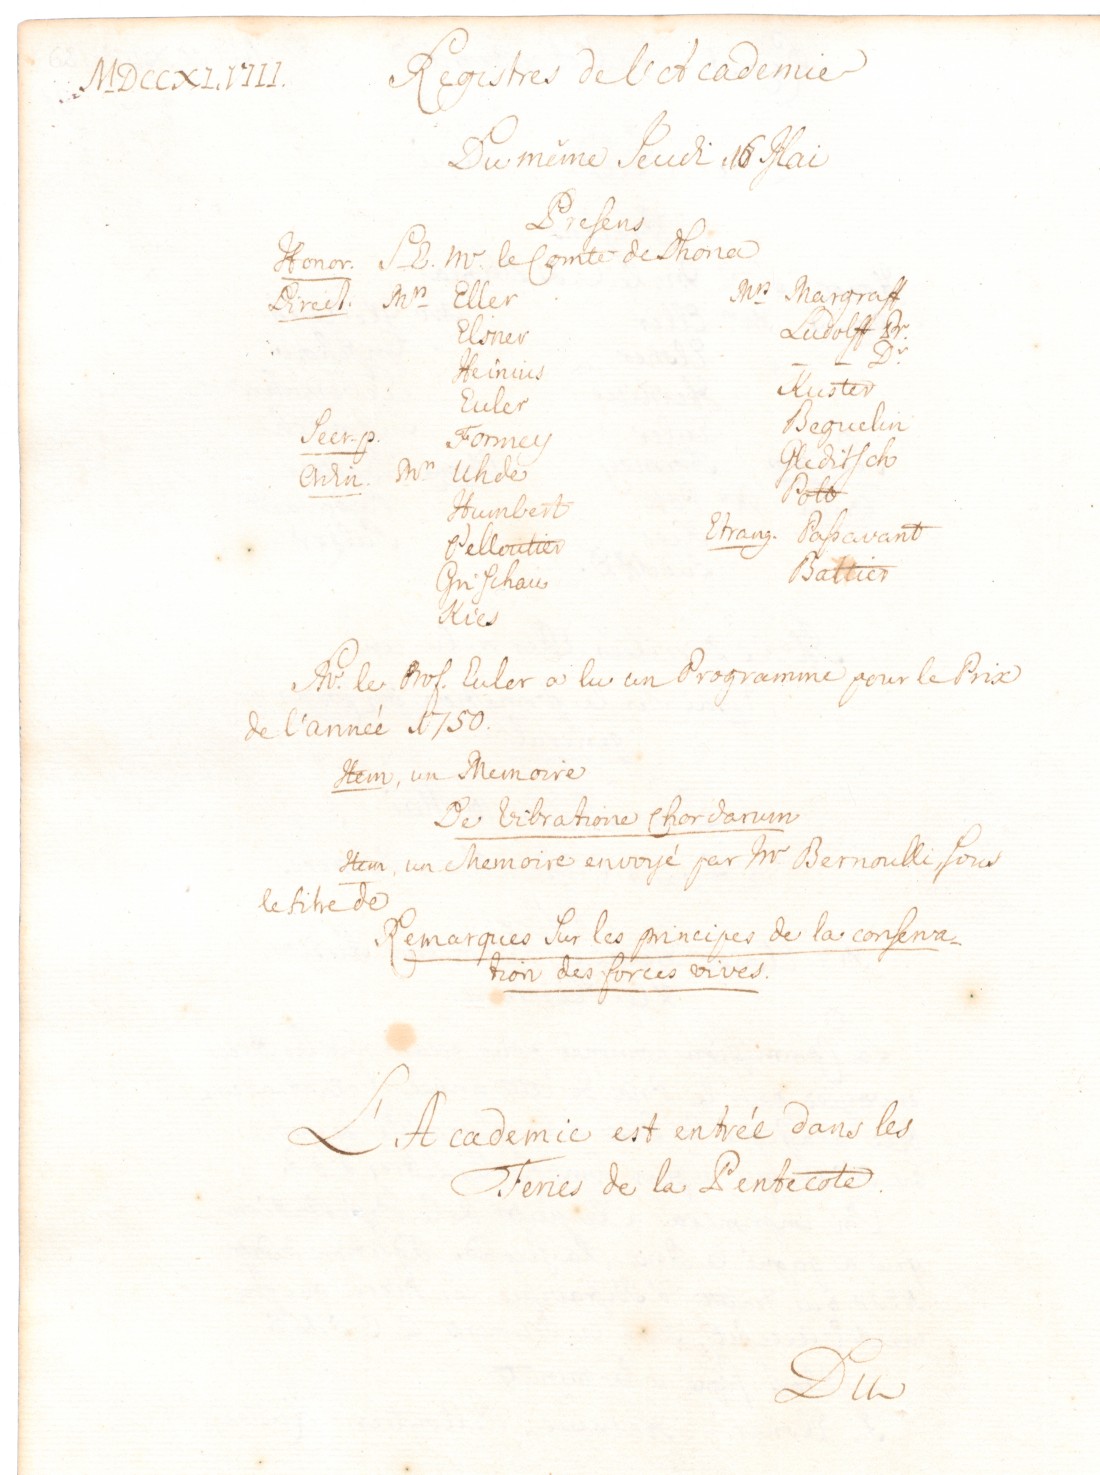 MDCCXLVIII.
Registres de l'Academie
Du même Jeudi 16 Mai
Presens
Honor. S. E. Mr. le Comte de Dhona
Direct. Mrs Eller
Elsner
Heinius
Euler
Secr. p. Formey
Ordin. Mrs Uhde
Humbert
Pelloutier
Grischau
Kies
Mrs Margraff
Ludolff Pr.
_ _ Dr
Kuster
Beguelin
Gleditsch
Pott
Etrang. Passavant
Battier
Mr. le Prof. Euler a lu un Programme pour le Prix
de l'année 1750.
Item, un Memoire
De Vibratione Chordarum
Item, un Memoire envoyé par Mr Bernoulli, sous
le titre de
Remarques sur les principes de la conserva-
tion des forces vives.
L'Academie est entrée dans les
Feries de la Pentecote.
Du